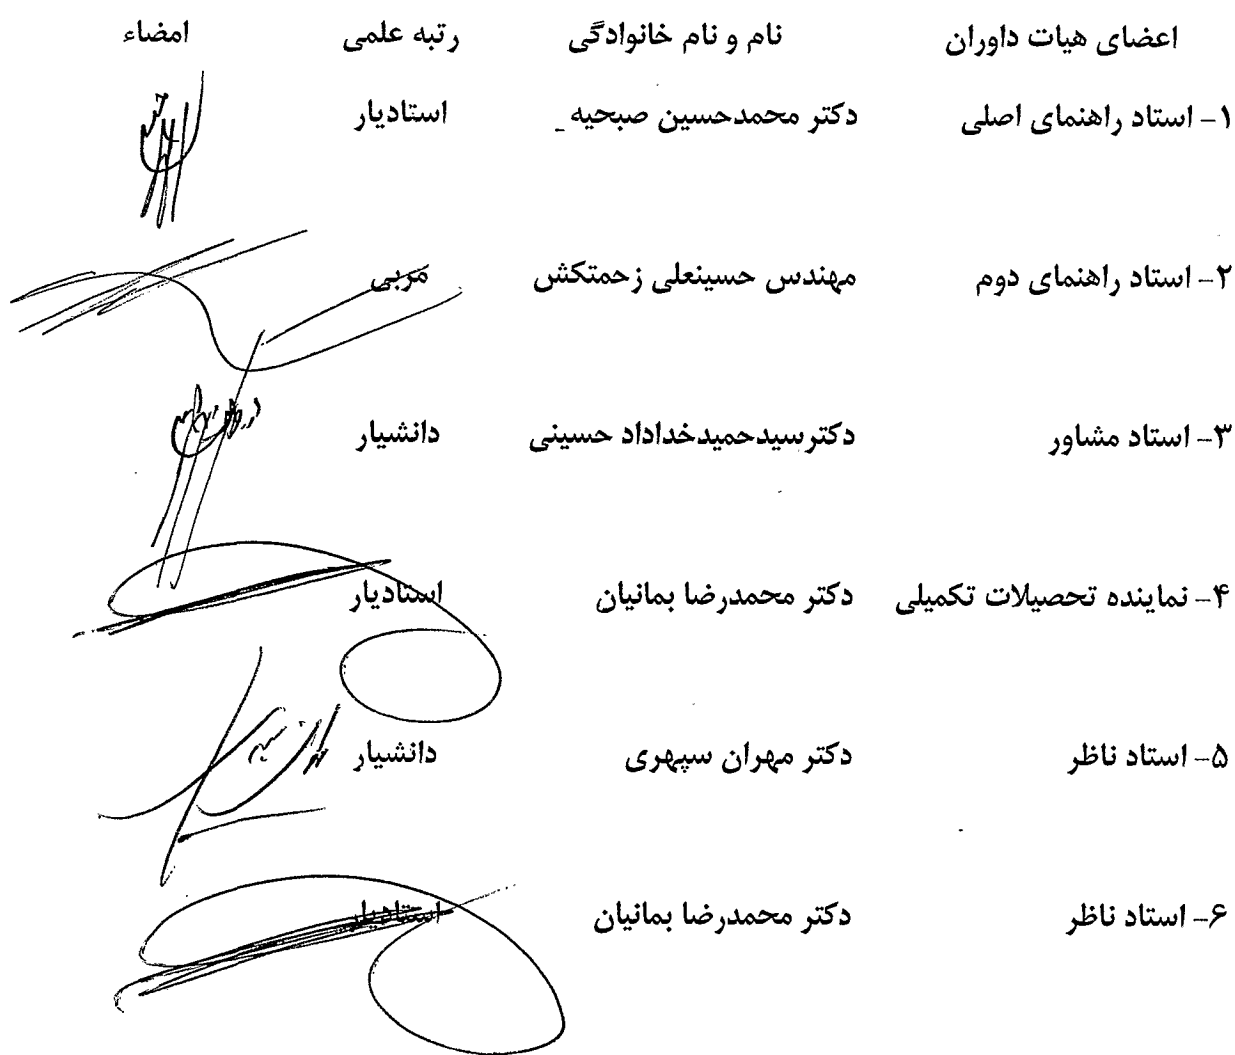 اعضای هیات داوران نام و نام خانوادگی رتبه علمی امضاء
۱- استاد راهنمای اصلی دکتر محمدحسین صبحیه استادیار
۲- استاد راهنمای دوم مهندس حسینعلی زحمتکش مربی
۳- استاد مشاور دکترسیدحمیدخداداد حسینی دانشیار
۴- نماینده تحصیلات تکمیلی دکتر محمدرضا بمانیان استادیار
۵- استاد ناظر دکتر مهران سپهری دانشیار
۶- استاد ناظر دکتر محمدرضا بمانیان استادیار